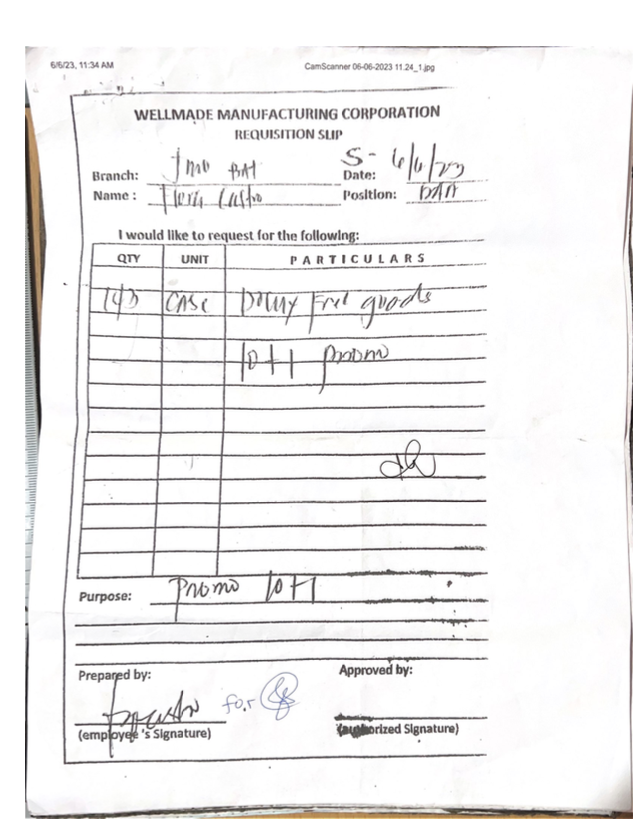 6/6/23, 11:34 AM CamScanner 06-06-2023 11.24_1.jpg
WELLMADE MANUFACTURING CORPORATION
REQUISITION SLIP
S-
Branch: BAT Date: 6/6/23
Name: Castro Position:
I would like to request for the following:
QTY UNIT PARTICULARS
143 CASE Free goods
10+1 promo
Purpose: Promo 10+1
Prepared by: Approved by:
for
(employee 's Signature) (authorized Signature)